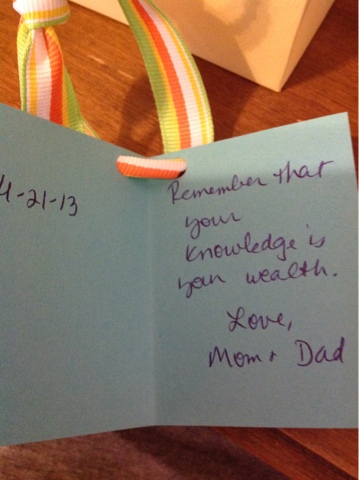 4-21-13
Remember that
your
knowledge is
your wealth.
Love,
Mom + Dad